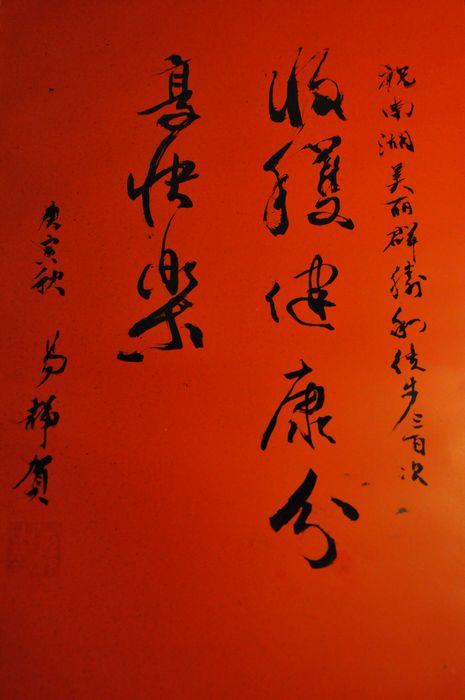 祝南湖美丽群胜利徒步三百次
收穫健康分
享快樂
庚寅秋 易靜賀